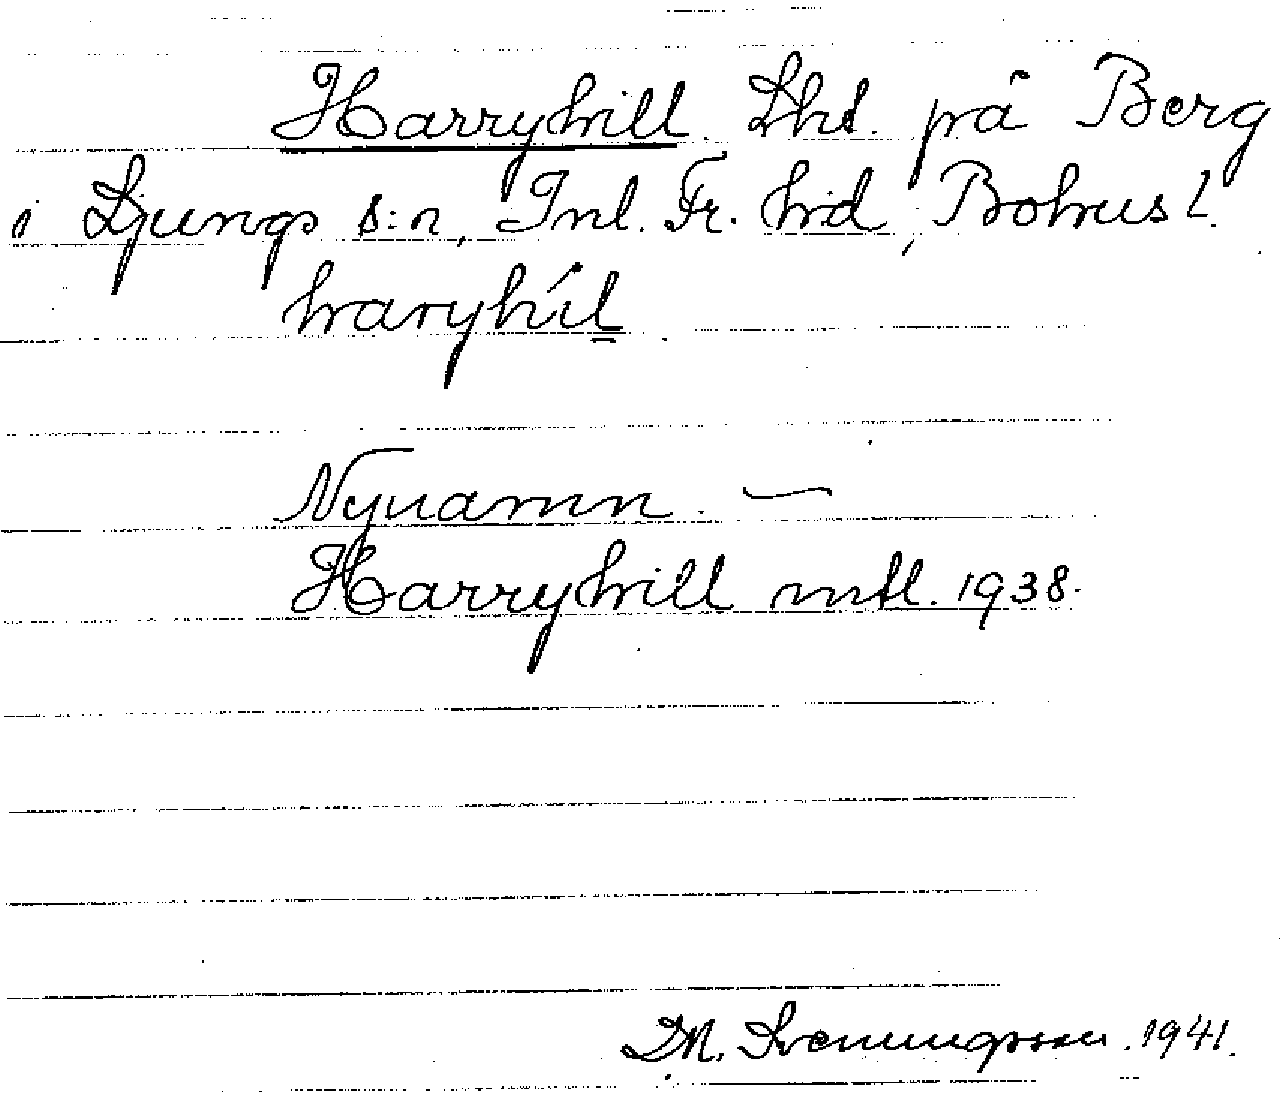 Harryhill. Lht. på Berg
i Ljungs s:n, Inl. Fr. hd, Bohusl.
haryhíl
Nynamn. —
Harryhill mtl. 1938.
D.M. Svenningsson. 1941.